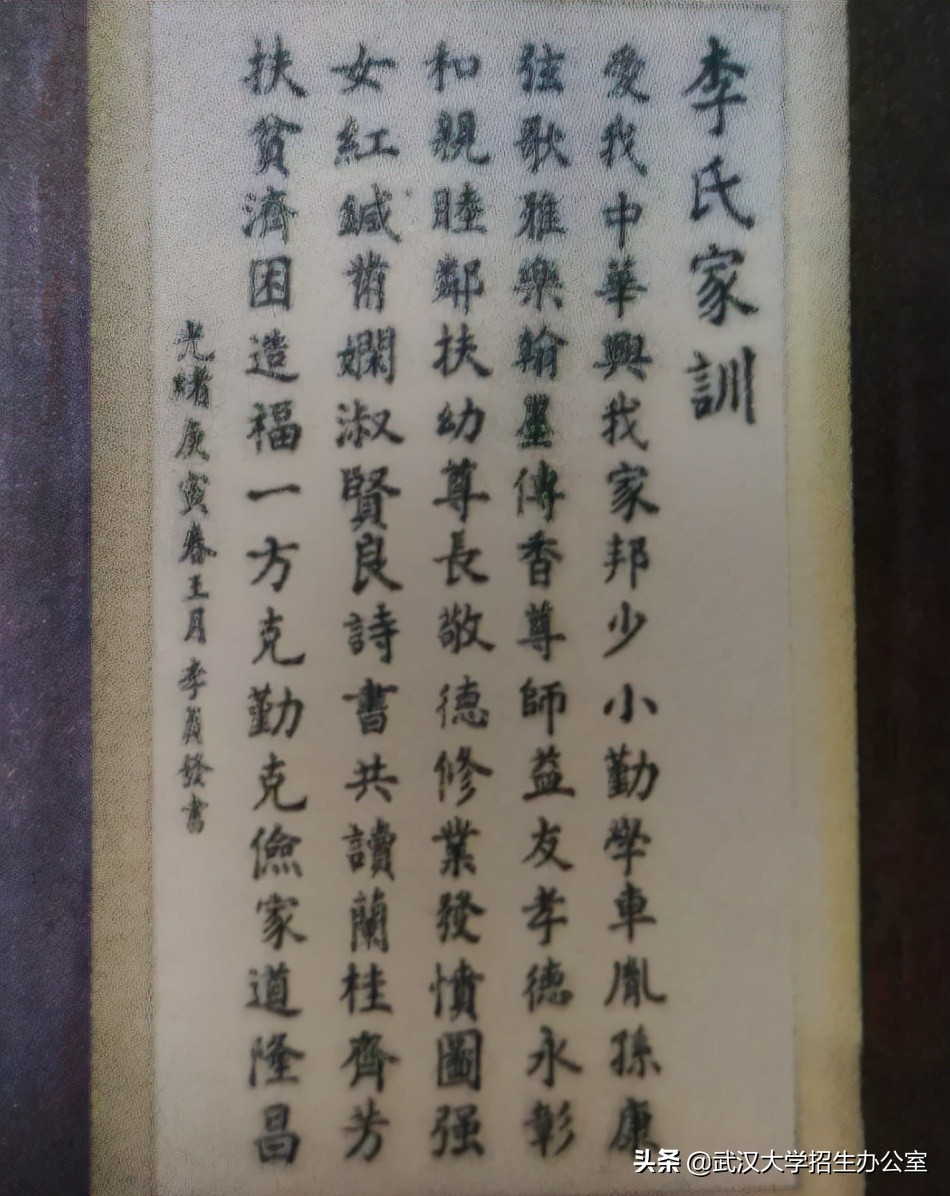 李氏家訓
愛我中華興我家邦少小勤學車胤孫康
弦歌雅樂翰墨傳香尊師益友孝德永彰
和親睦鄰扶幼尊長敬德修業發憤圖强
女紅鍼黹嫻淑賢良詩書共讀蘭桂齊芳
扶貧濟困造福一方克勤克儉家道隆昌
光緒庚寅春王月李發書
头条 @武汉大学招生办公室